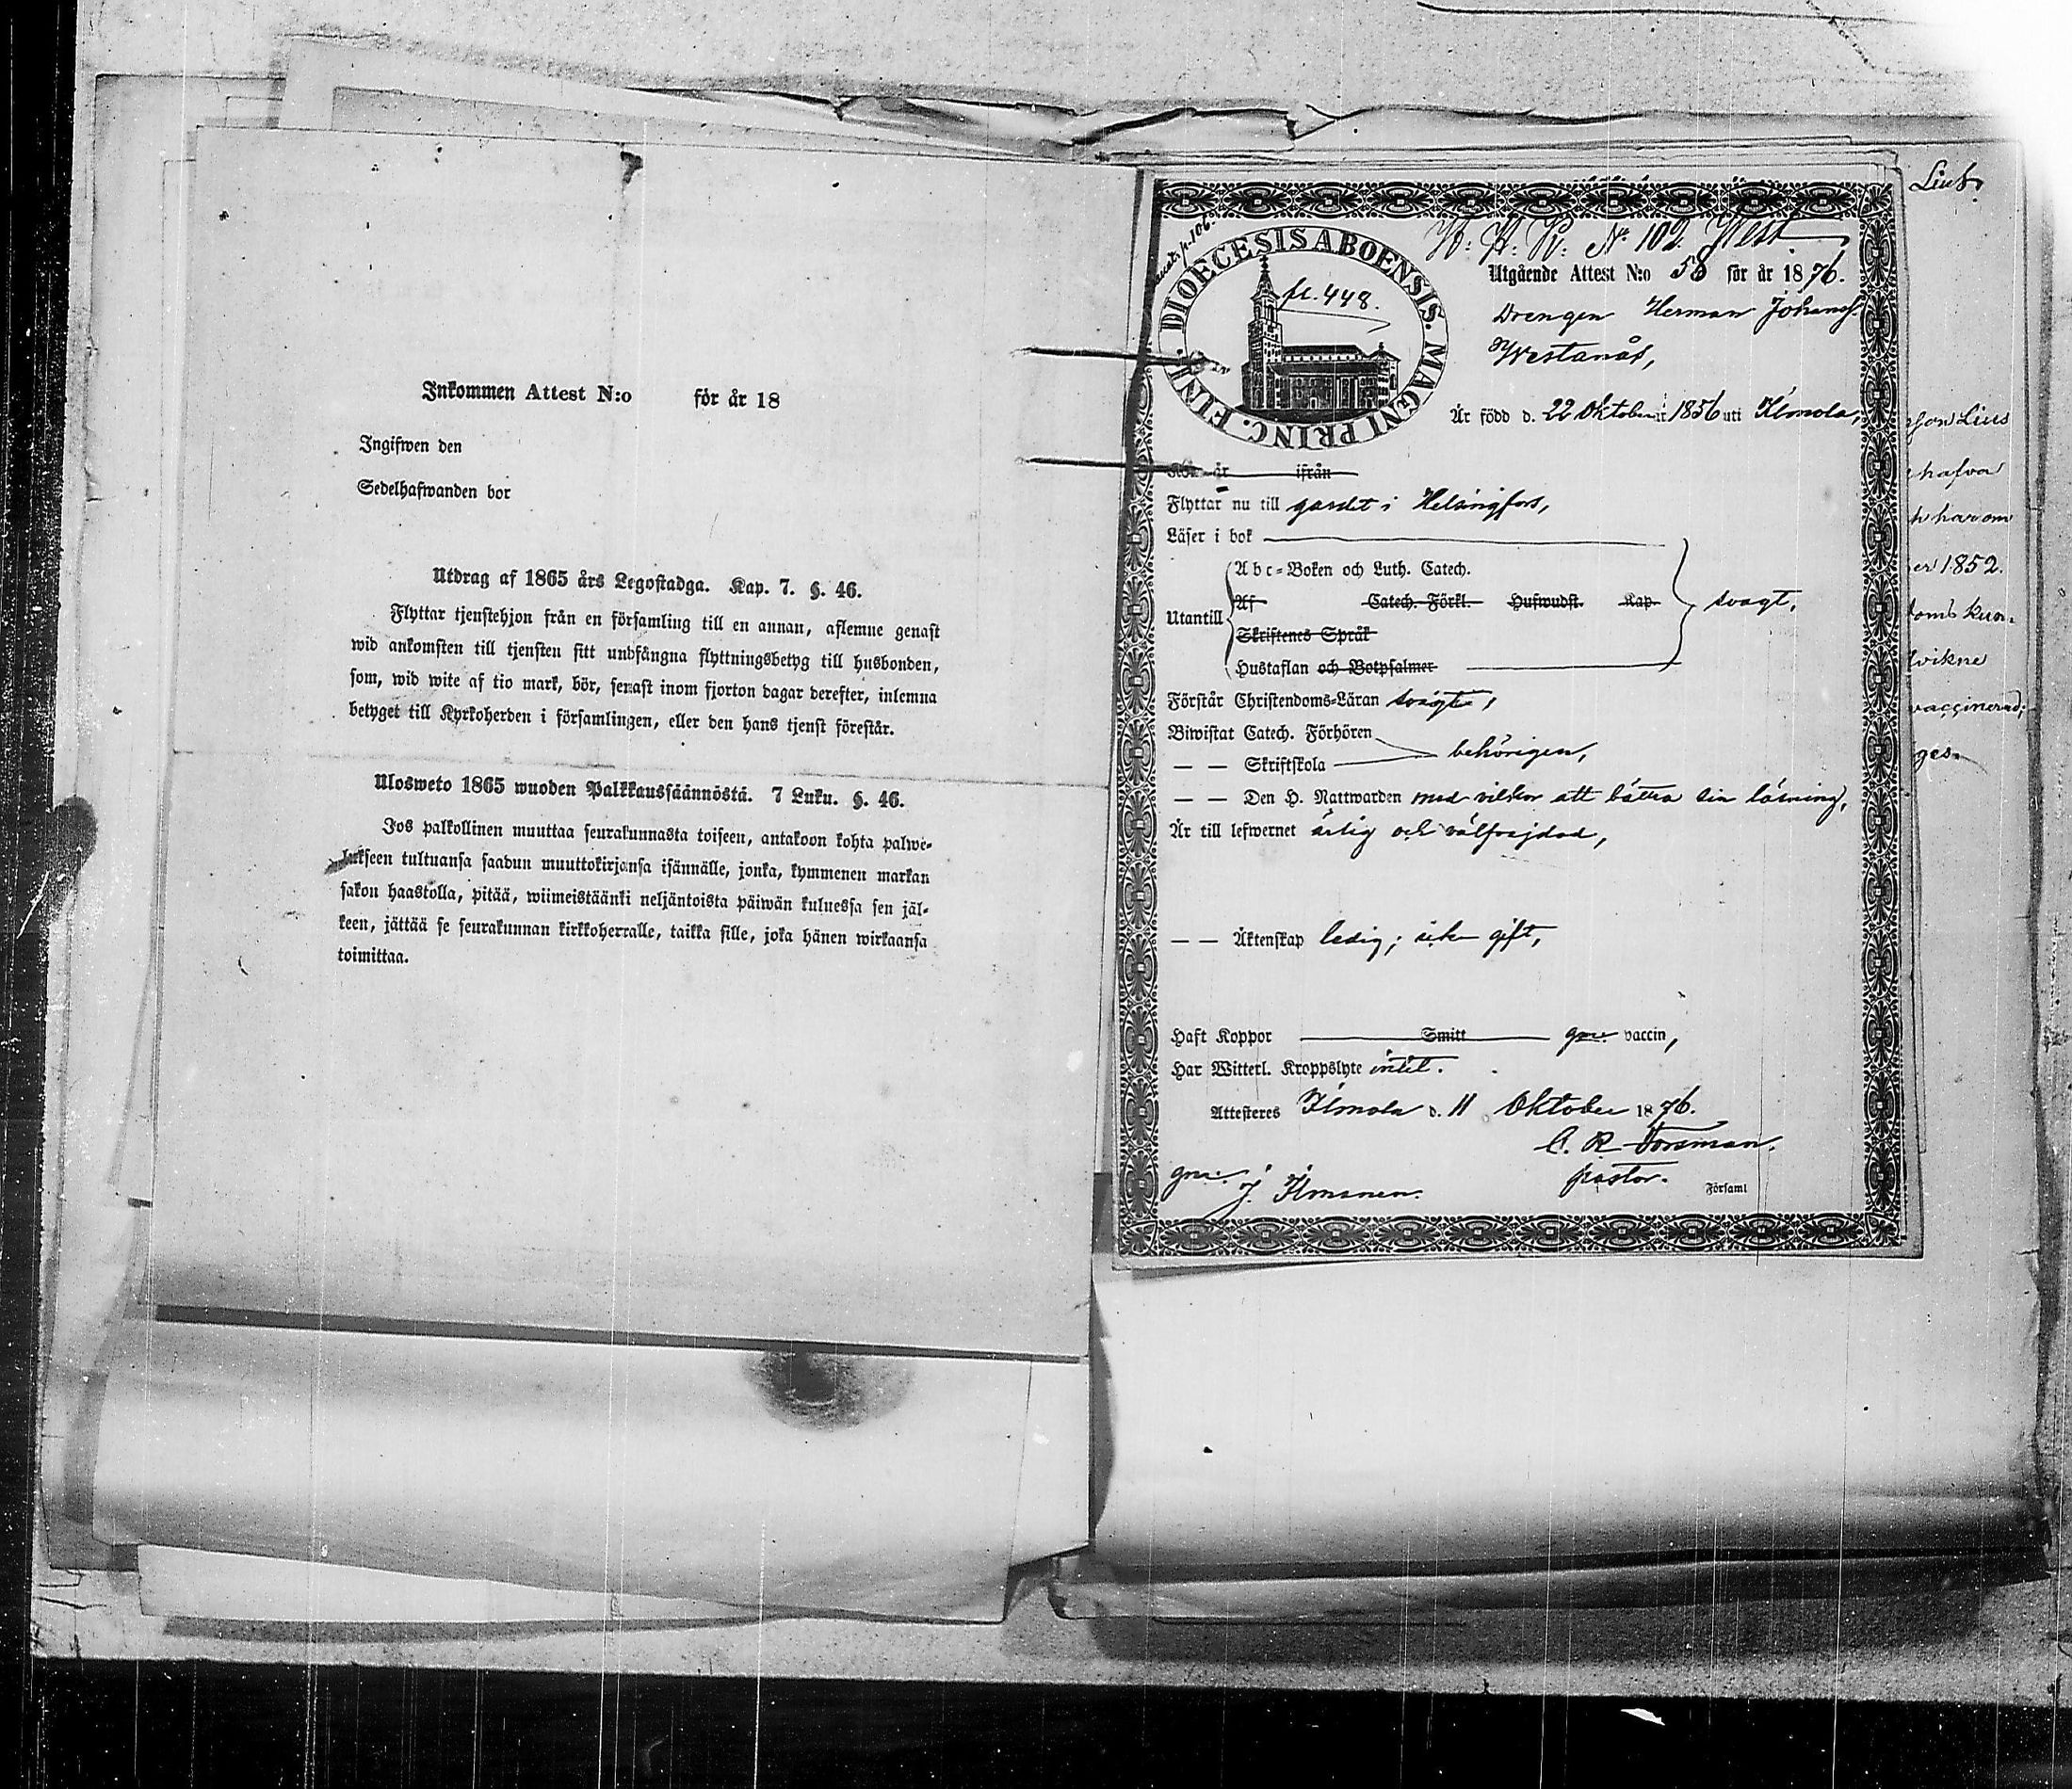 Inkommen Attest N:o för år 18
Ingifwen den
Sedelhafwanden bor
Utdrag af 1865 års Legostadga. Kap. 7. §. 46.
Flyttar tjenstehjon från en församling till en annan, aflemne genast
wid ankomsten till tjensten sitt undfångna flyttningsbetyg till husbonden,
som, wid wite af tio mark, bör, senast inom fjorton dagar derefter, inlemna
betyget till Kyrkoherden i församlingen, eller den hans tjenst förestår.
Ulosweto 1865 wuoden Palkkaussäännöstä. 7 Luku. §. 46.
Jos palkollinen muuttaa seurakunnasta toiseen, antakoon kohta palwe-
lukseen tultuansa saadun muuttokirjansa isännälle, jonka, kymmenen markan
sakon haastolla, pitää, wiimeistäänki neljäntoista päiwän kuluessa sen jäl-
keen, jättää se seurakunnan kirkkoherralle, taikka sille, joka hänen wirkaansa
toimittaa.
p. 106.
DIOECESIS ABOENSIS. MAGNI PRINC. FINL.
fl. 448.
N:o 102 West
Utgående Attest N:o 58 för år 1876.
Drengen Herman Johansf.
Westanås,
Är född d. 22 Oktober 1856 uti Ilmola,
Kom år ifrån
Flyttar nu till gardet i Helsingfors,
Läser i bok
Abc-Boken och Luth. Catech.
Af Catech. Förkl. Hufwudst. Kap.
Utantill svagt,
Skriftenes Språk
Hustaflan och Botpsalmer
Förstår Christendoms-Läran svagt,
Biwistat Catech. Förhören
behörigen,
— — Skriftskola
— — Den H. Nattwarden med vilkor att bättra sin läsning,
Är till lefwernet ärlig och välfrejdad,
— — Äktenskap ledig; icke gift,
Haft Koppor Smitt gm. vaccin,
Har Witterl. Kroppslyte intet.
Attesteres Ilmola d. 11 Oktober 1876.
C. R. Forsman.
pastor. Församl
gm. J. Ilmonen.
Lius
hafva
har om
er 1852.
doms kun-
vaccinerad;